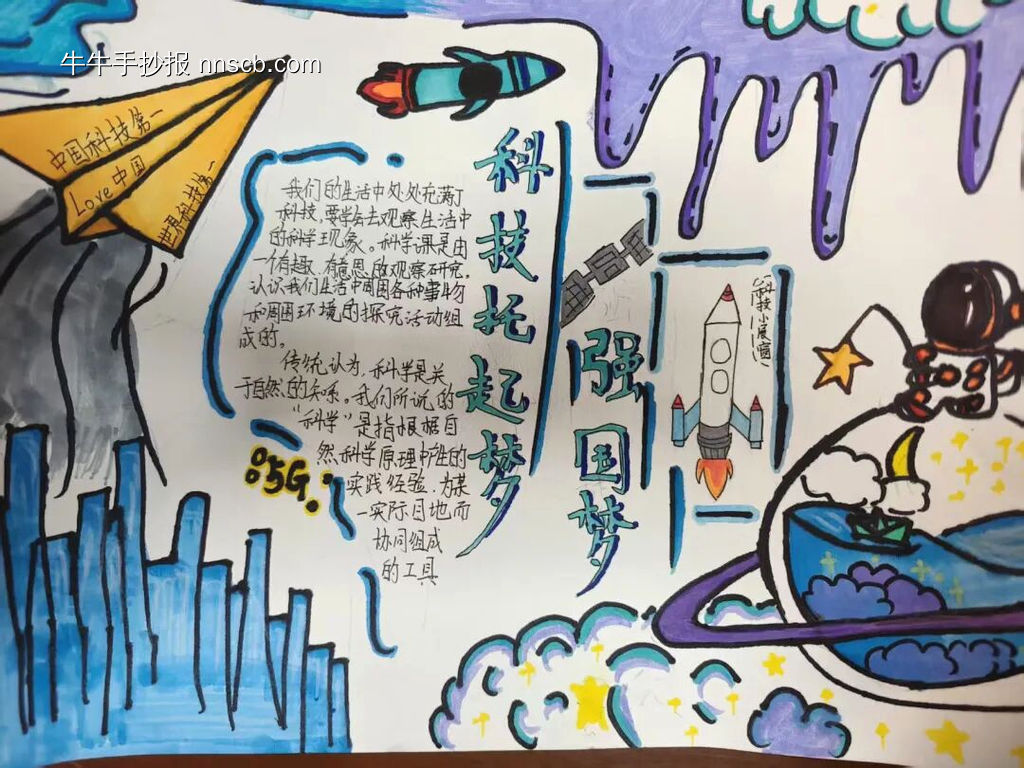 牛牛手抄报 nnscb.com
中国科技第一
Love中国
世界科技第一
科技托起梦
强国梦
我们的生活中处处充满了
科技,要学会去观察生活中
的科学现象。科学课是由
一个有趣、有意思的观察研究,
认识我们生活中周围各种事物
和周围环境的探究活动组
成的。
传统认为,科学是关
于自然的知味。我们所说的
“科学”是指根据自
然科学原理中产生的
实践经验,为某
一实际目地而
协同组成
的工具
5G
科技小展窗